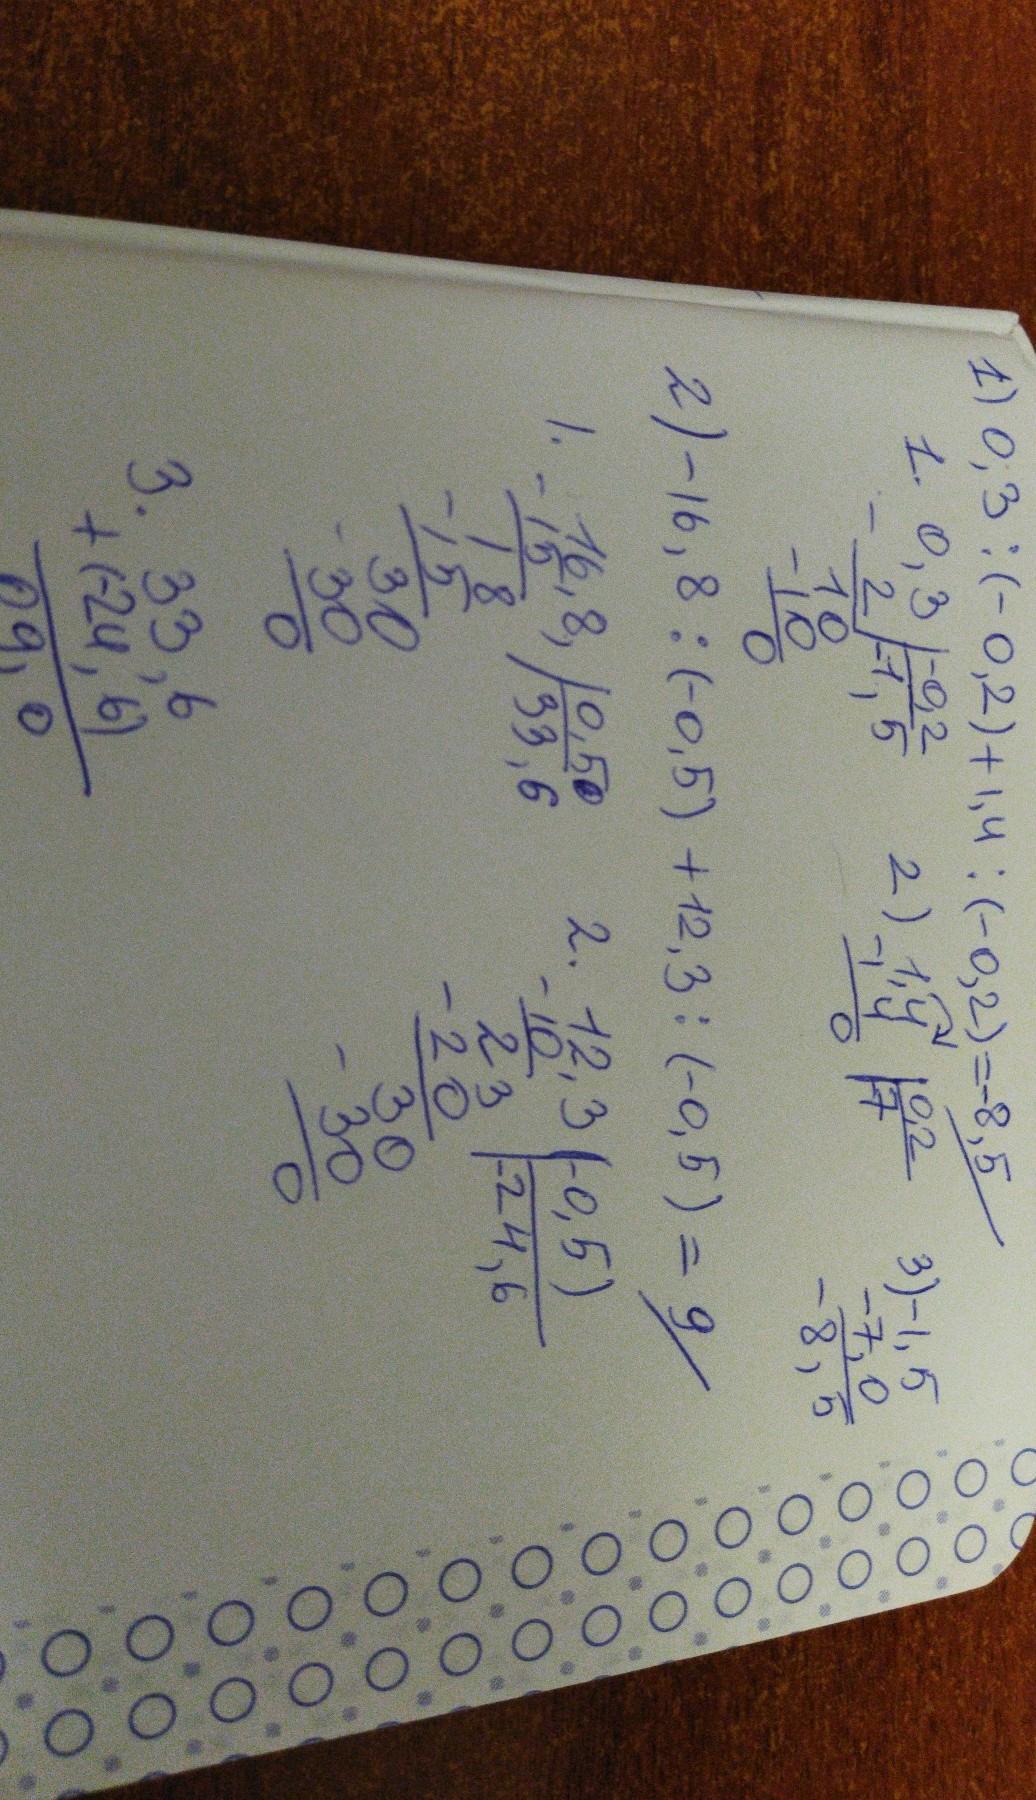 1) 0,3 : (- 0,2) + 1,4 : (- 0,2) = -8,5
1. 0,3 | -0,2
- 2 | -1,5
10
-10
0
2) 1,4 | 0,2
-1,4 | -7
0
3) -1,5
-7,0
-8,5
2) -16,8 : (-0,5) + 12,3 : (-0,5) = 9
1. 16,8, | 0,5
-15 | 33,6
18
-15
30
-30
0
2. 12,3 (-0,5)
-10 | -24,6
23
-20
30
- 30
0
3. 33,6
+ (-24,6)
09,0